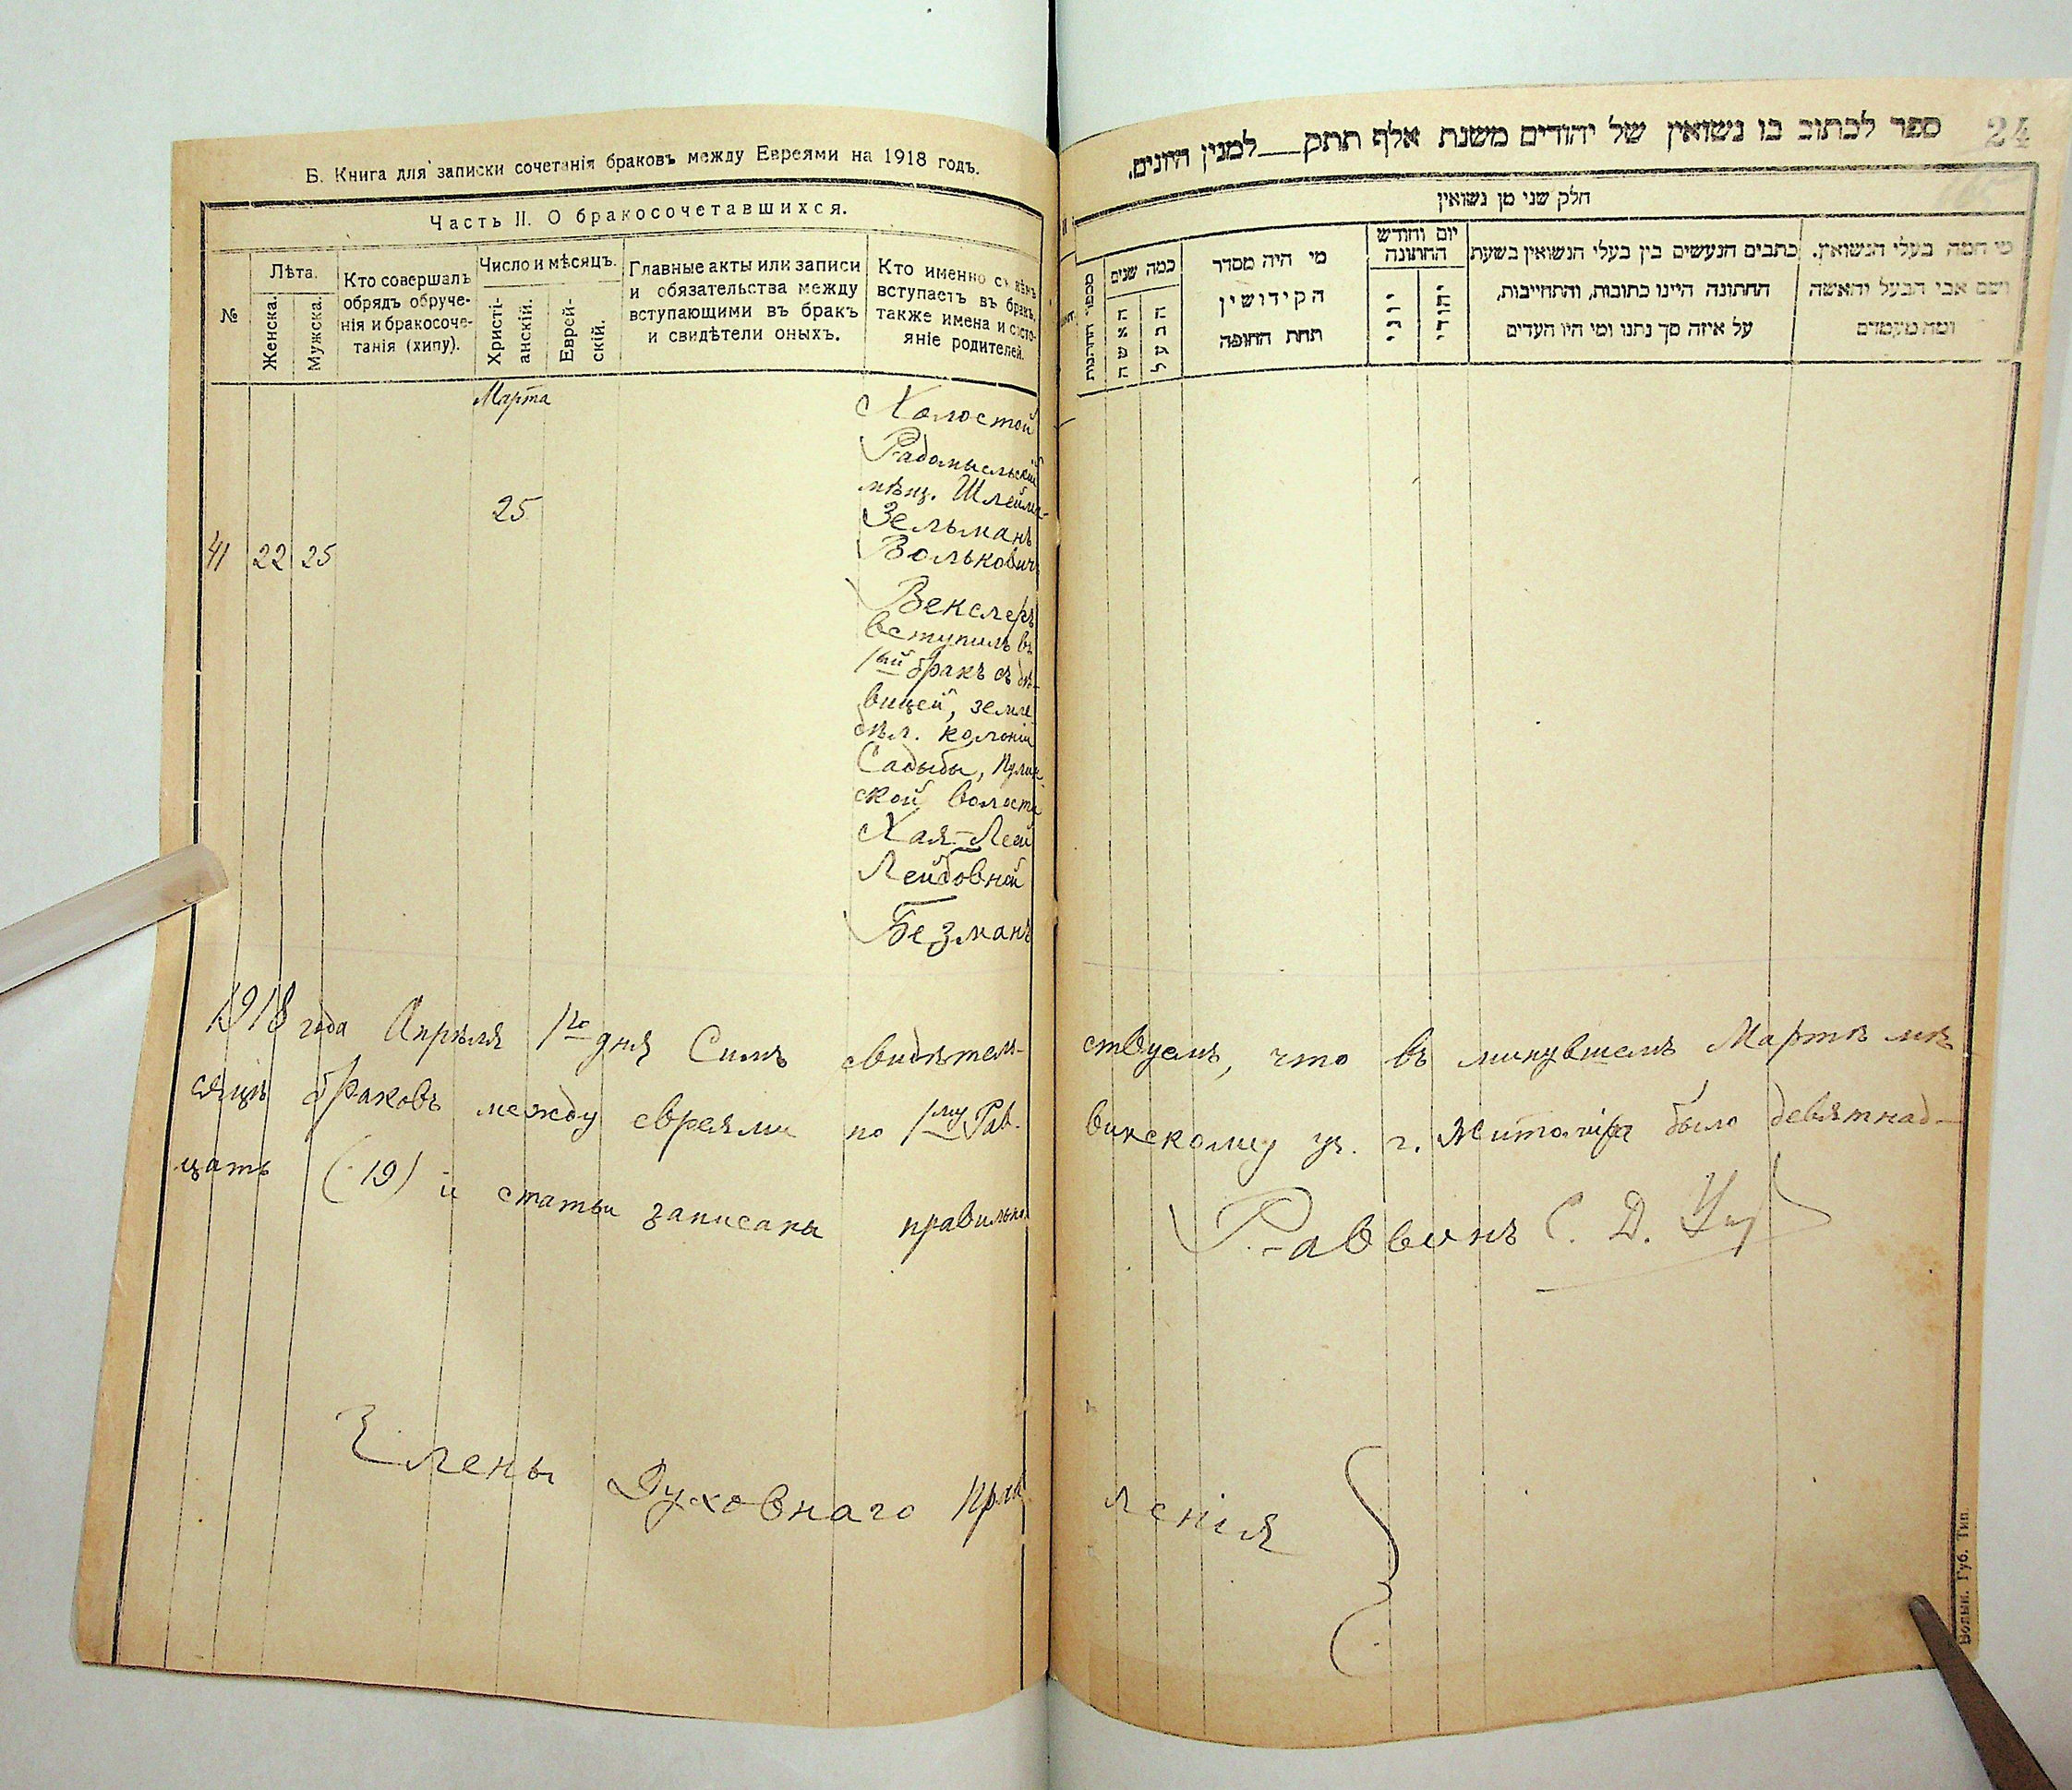 Б. Книга для записки сочетанія браковъ между Евреями на 1918 годъ.
Часть II. О бракосочетавшихся.
№
Лѣта.
Женска.
Мужска.
Кто совершалъ
обрядъ обруче-
нія и бракосоче-
танія (хипу).
Число и мѣсяцъ.
Христі-
анскій.
Еврей-
скій.
Главные акты или записи
и обязательства между
вступающими въ бракъ
и свидѣтели оныхъ.
Кто именно съ кѣмъ
вступаетъ въ бракъ,
также имена и состо-
яніе родителей.
Марта
41 22 25
25
Холостой
Радомысльскій
мѣщ. Шлейма-
Зельманъ
Вольковичъ
Векслеръ
вступилъ въ
1ый бракъ съ дѣ-
вицей, земле
дѣл. колоніи
Садыбы, Пулин
ской волости
Хая-Леей
Лейбовной
Безманъ
1918 года Апрѣля 1го дня Симъ свидѣтель-
ствуемъ, что въ минувшемъ Мартѣ мѣ
сяцѣ браковъ между евреями по 1му Рав-
винскому уч. г. Житомира было девятнад-
цать (19) и статьи записаны правильно
Раввинъ С. Д.
Члены Духовнаго Прав
ленія
ספר לכתוב בו נשואין של יהודים משנת אלף תתק למנין היונים.
24
חלק שני מן נשואין
מספר החתונות
כמה שנים
האשה
הבעל
מי היה מסדר
הקידושין
תחת החופה
יום וחודש
החתונה
יוני
יהודי
כתבים הנעשים בין בעלי הנשואין בשעת
החתונה היינו כתובות, והתחייבות,
על איזה סך נתנו ומי היו העדים
מי המה בעלי הנשואין.
ושם אבי הבעל והאשה
ומה מעמדם
Волын. Губ. Тип.